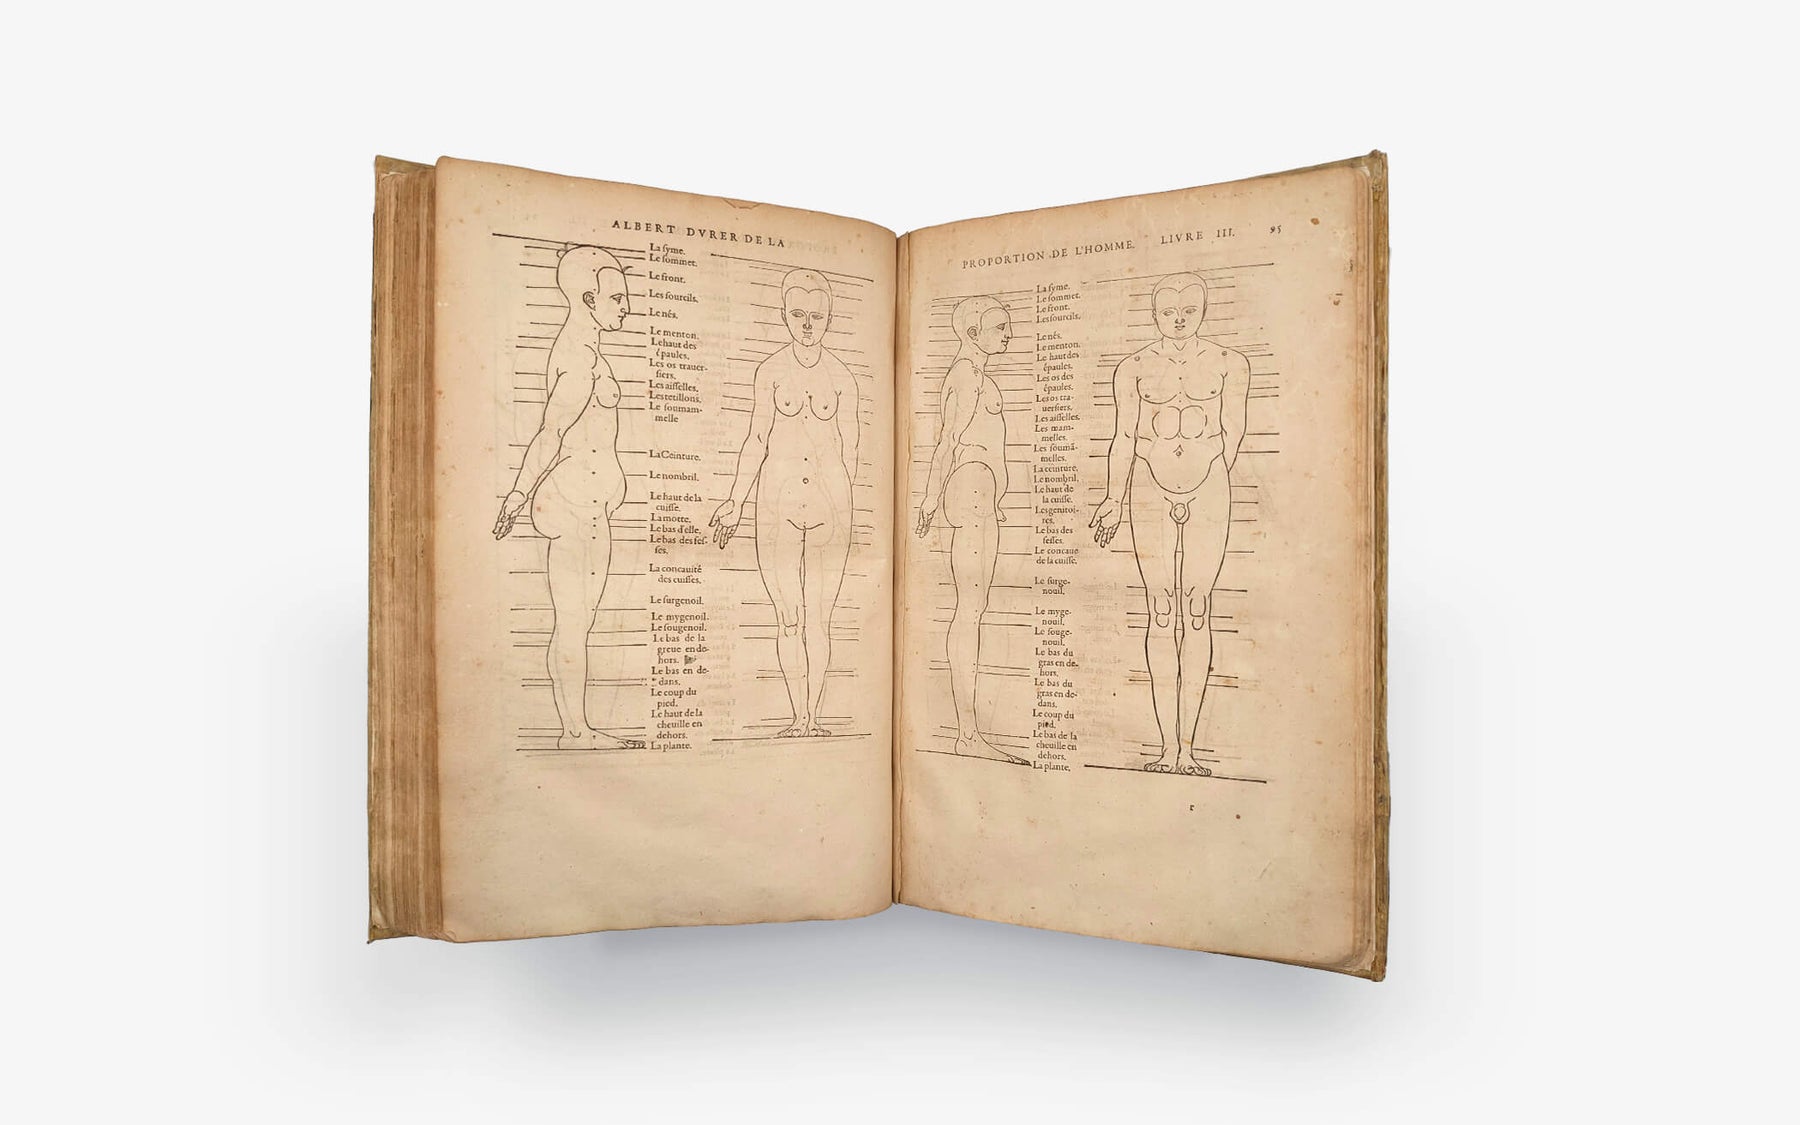 ALBERT DVRER DE LA
La syme.
Le sommet.
Le front.
Les sourcils.
Le nés.
Le menton.
Le haut des
épaules.
Les os trauer-
siers.
Les aisselles.
Les tetillons.
Le soumam-
melle
La Ceinture.
Le nombril.
Le haut de la
cuisse.
La motte.
Le bas d'elle.
Le bas des fes-
ses.
La concauité
des cuisses.
Le surgenoil.
Le mygenoil.
Le sougenoil.
Le bas de la
greue en de-
hors.
Le bas en de-
dans.
Le coup du
pied.
Le haut de la
cheuille en
dehors.
La plante.
PROPORTION DE L'HOMME. LIVRE III. 95
La syme.
Le sommet.
Le front.
Les sourcils.
Le nés.
Le menton.
Le haut des
épaules.
Les os des
épaules.
Les os tra-
uersiers.
Les aisselles.
Les mam-
melles.
Les soumā-
melles.
La ceinture.
Le nombril.
Le haut de
la cuisse.
Les genitoi-
res.
Le bas des
fesses.
Le concaue
de la cuisse.
Le surge-
nouil.
Le myge-
nouil.
Le souge-
nouil.
Le bas du
gras en de-
hors.
Le bas du
gras en de-
dans.
Le coup du
pied.
Le bas de la
cheuille en
dehors.
La plante.
r